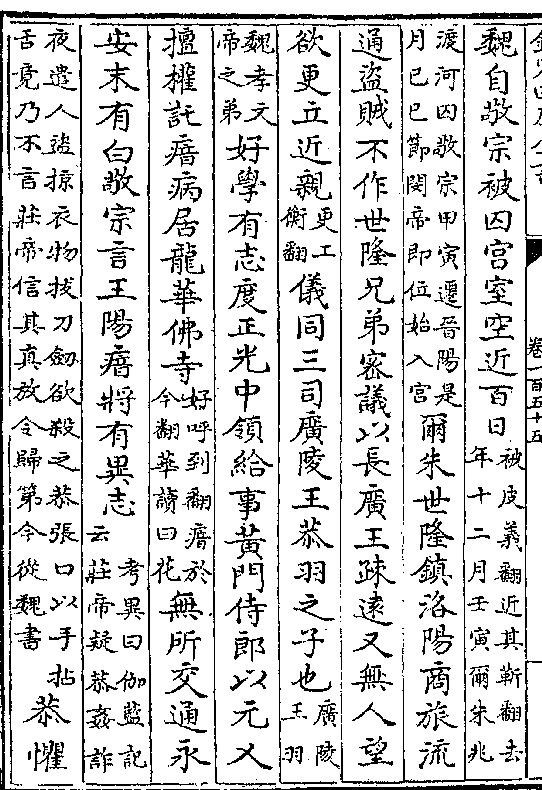 卷一百五十五
魏自敬宗被囚宮室空近百日被皮義翻近其靳翻去年十二月壬寅爾朱兆
渡河囚敬宗甲寅遷晉陽是月己巳節閔帝即位始入宮爾朱世隆鎮洛陽商旅流
通盜賊不作世隆兄弟密議以長廣王疎逺又無人望
欲更立近親更工衡翻儀同三司廣陵王恭羽之子也廣陵王羽
魏孝文帝之弟好學有志度正光中領給事黄門侍郎以元乂
擅權託瘖病居龍華佛寺好呼到翻瘖於今翻華讀曰花無所交通永
安末有白敬宗言王陽瘖將有異志考異曰伽藍記云莊帝疑恭姦詐
夜遣人盜掠衣物拔刀劒欲殺之恭張口以手拈舌竟乃不言莊帝信其真放令歸第今從魏書恭懼